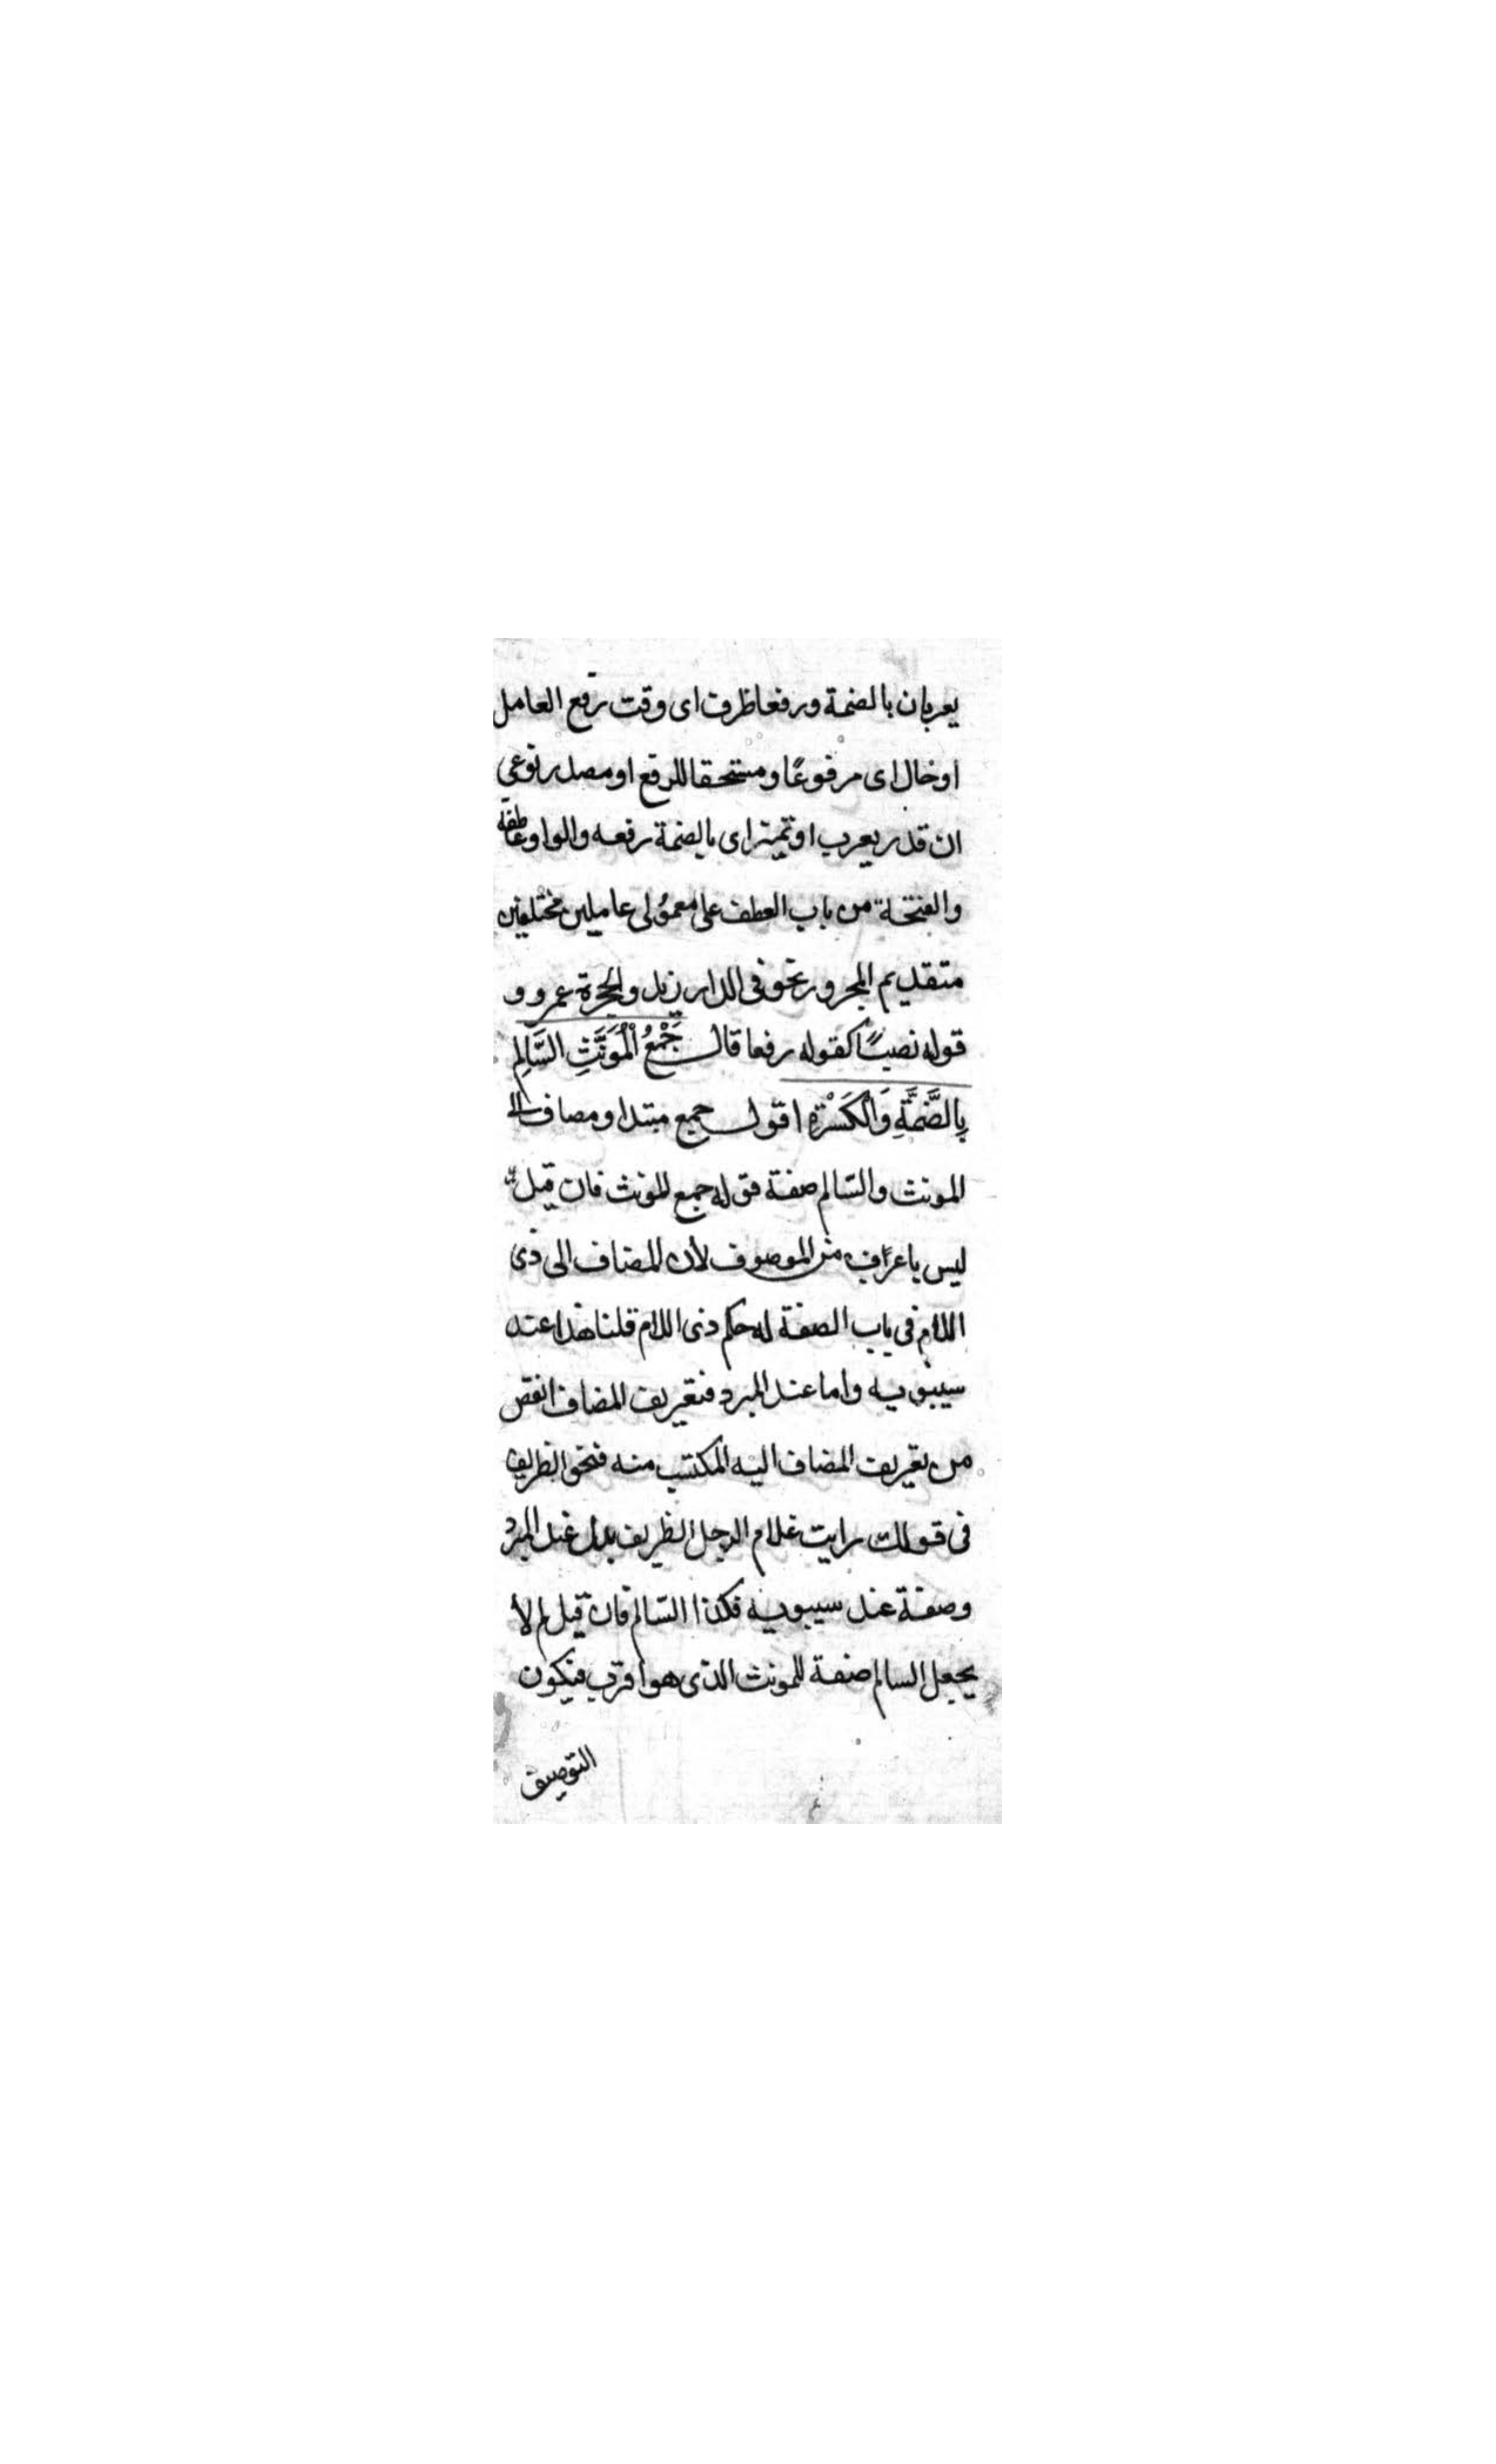 يعربان بالضمة ورفعا ظرف اى وقت رفع العامل
او حال اى مرفوعًا ومستحقا للرفع او مصدر نوعى
ان قدر يعرب او تميز اى بالضمة رفعه والواو عاطفة
والفتحة من باب العطف على معمولى عاملين مختلفين
متقديم المجرور نحو فى الدار زيد والحجرة عمرو و
قوله نصبًا كقوله رفعا قال جَمْعُ الْمُوَنَّثِ السَّالِمِ
بِالضَّمَّةِ وَالْكَسْرَةِ اقول جمع مبتدا ومضاف الى
المونث والسّالم صفة قوله جمع المونث فان قيل
ليس باعراف من الموصوف لأن المضاف الى ذى
اللام فى باب الصفة له حكم ذى اللام قلنا هذا عند
سيبويه واما عند المبرد فتعريف المضاف انقص
من تعريف المضاف اليه المكتسب منه فنحو الظريف
فى قولك رايت غلام الرجل الظريف بدل عند المبرد
وصفة عند سيبويه فكذا السّالم فان قيل لم لا
يجعل السالم صفة للمونث الذى هو اقرب فيكون
التوصيف